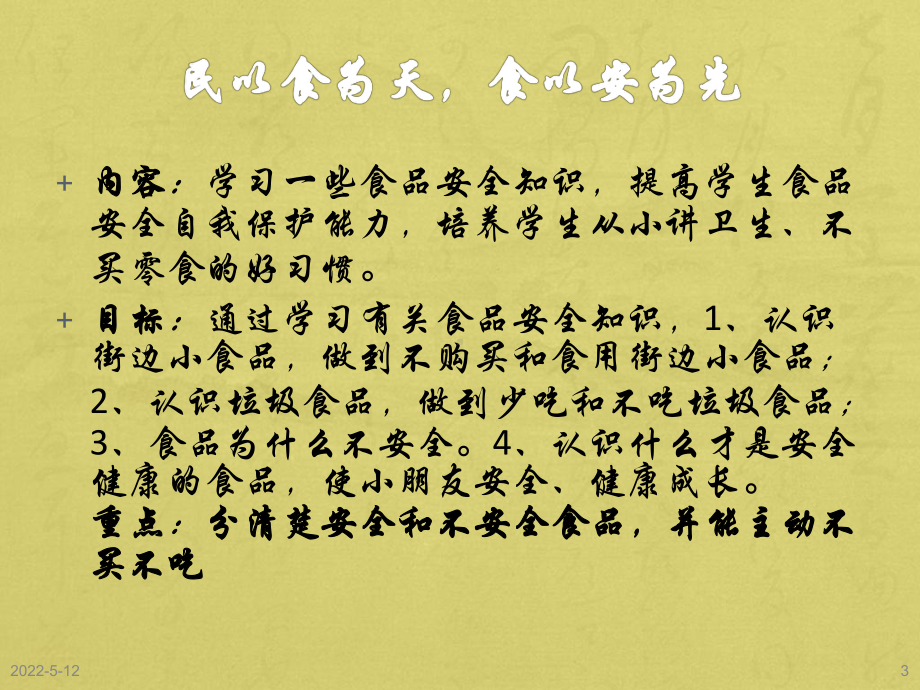 民以食为天，食以安为先
+ 内容：学习一些食品安全知识，提高学生食品
安全自我保护能力，培养学生从小讲卫生、不
买零食的好习惯。
+ 目标：通过学习有关食品安全知识，1、认识
街边小食品，做到不购买和食用街边小食品；
2、认识垃圾食品，做到少吃和不吃垃圾食品；
3、食品为什么不安全。4、认识什么才是安全
健康的食品，使小朋友安全、健康成长。
重点：分清楚安全和不安全食品，并能主动不
买不吃
2022-5-12
3